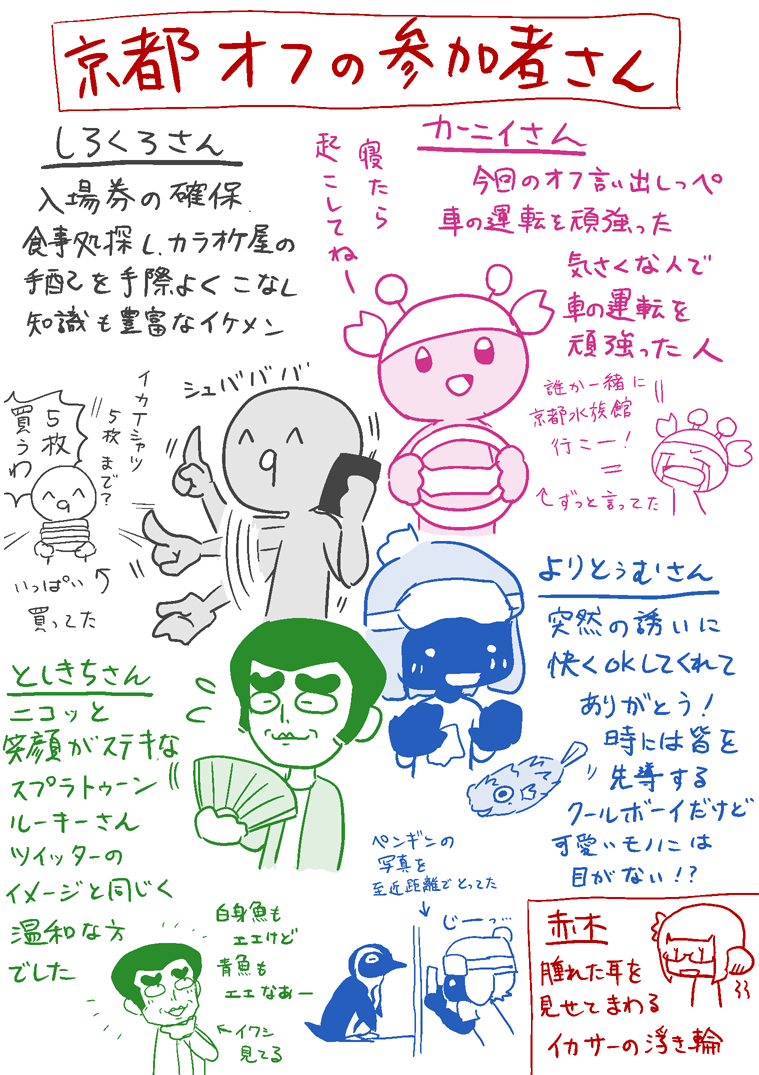 京都オフの参加者さん
しろくろさん
入場券の確保
食事処探し、カラオケ屋の
手配を手際よくこなし
知識も豊富なイケメン
シュババババ
イカTシャツ
5枚まで?
5枚
買うわ
いっぱい
買ってた
カーニィさん
今回のオフ言い出しっぺ
車の運転を頑強った
気さくな人で
車の運転を
頑強った人
寝たら
起こしてねー
誰か一緒に
京都水族館
行こー!
=
↑ずっと言ってた
よりとぅむさん
突然の誘いに
快くOKしてくれて
ありがとう!
時には皆を
先導する
クールボーイだけど
可愛いモノには
目がない!?
ペンギンの
写真を
至近距離でとってた
じーっ…
としきちさん
ニコッと
笑顔がステキな
スプラトゥーン
ルーキーさん
ツイッターの
イメージと同じく
温和な方
でした
白身魚も
エエけど
青魚も
エエなあー
←イワシ
見てる
赤木
腫れた耳を
見せてまわる
イカサーの浮き輪